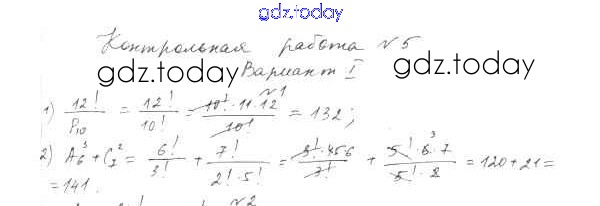 gdz.today
Контрольная работа №5
gdz.today Вариант I gdz.today
№1
1) 12!/P₁₀ = 12!/10! = 10!·11·12/10! = 132;
2) A₆³ + C₇² = 6!/3! + 7!/2!·5! = 3!·456/3! + 5!·6·7/5!·2 = 120+21=
=141.
№2